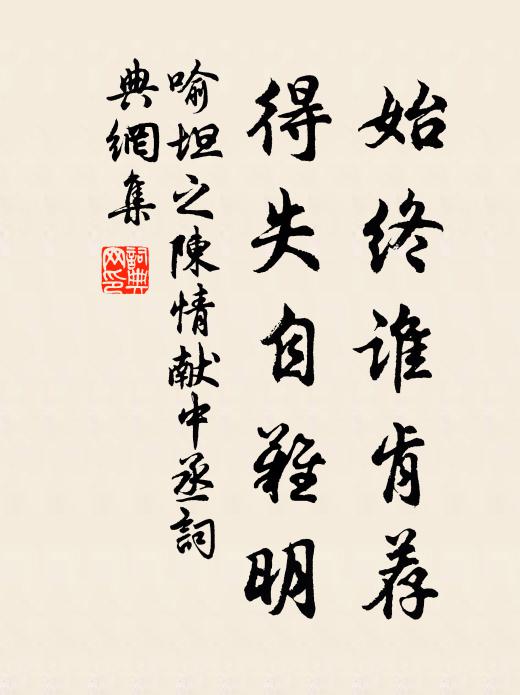 始终谁肯荐
得失自難明
喻坦之陳情献中丞詞
典網集
詞典
网印